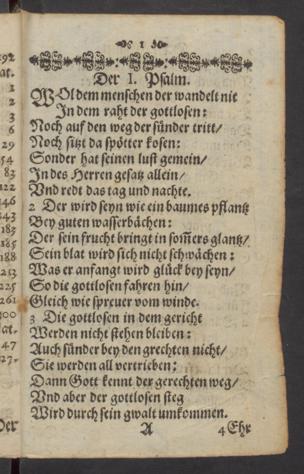 1
Der I. Psalm.
WOl dem menschen der wandelt nit
In dem raht der gottlosen:
Noch auf den weg der sünder tritt/
Noch sitzt da spötter kosen:
Sonder hat seinen lust gemein/
In des Herren gesatz allein/
Vnd redt das tag und nachte.
2 Der wird seyn wie ein baumes pflantz
Bey guten wasserbächen:
Der sein frucht bringt in som̃ers glantz/
Sein blat wird sich nicht schwächen:
Was er anfangt wird glück bey seyn/
So die gottlosen fahren hin/
Gleich wie spreuer vom winde.
3 Die gottlosen in dem gericht
Werden nicht stehen bleiben:
Auch sünder bey den grechten nicht/
Sie werden all vertrieben:
Dann Gott kennt der gerechten weg/
Vnd aber der gottlosen steg
Wird durch sein gwalt umkommen.
A 4 Ehr
192
at.
1
2
3
6
29
54
83
122
146
143
183
185
188
213
225
261
300
lat.
47
27.
Der